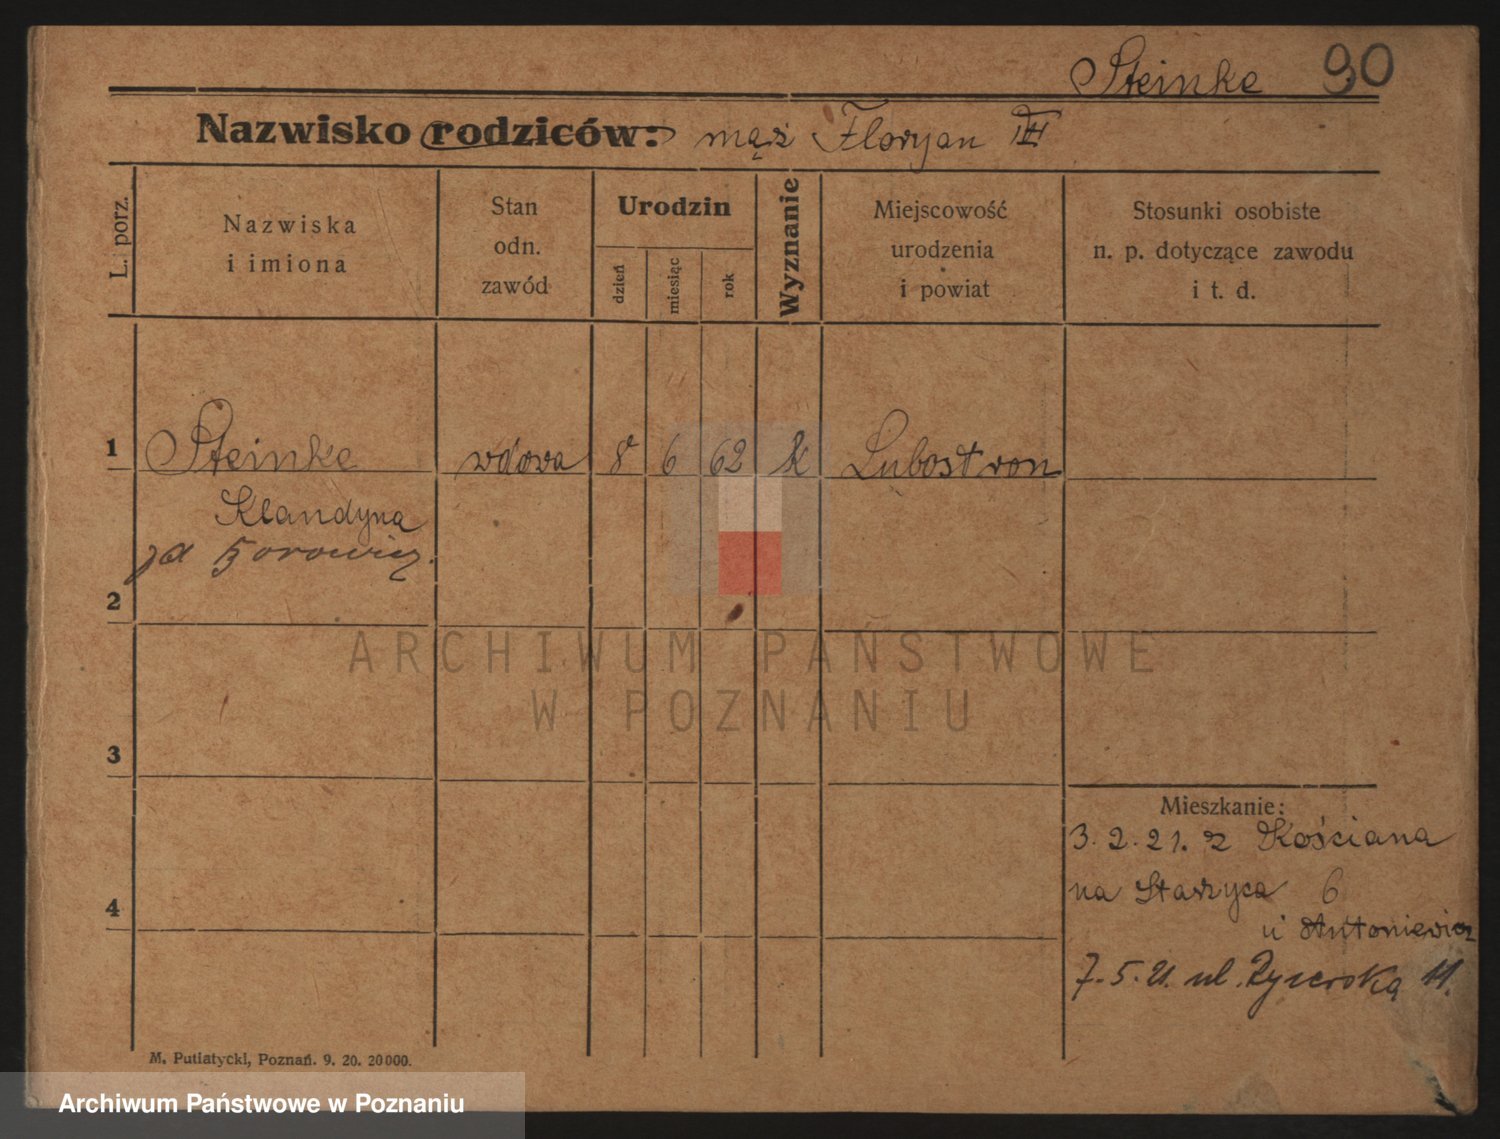 Steinke 90
Nazwisko rodziców: mąż Floryan III
L. porz.
Nazwiska
i imiona
Stan
odn.
zawód
Urodzin
dzień
miesiąc
rok
Wyznanie
Miejscowość
urodzenia
i powiat
Stosunki osobiste
n. p. dotyczące zawodu
i t. d.
1 Steinke wdowa 8 6 62 k Lubostron
Klandyna
zd
2
ARCHIWUM PAŃSTWOWE
W POZNANIU
3
Mieszkanie:
3. 2. 21. z Kościana
na Starzyca 6
u Antoniewicz
4
7. 5. 21. ul. 11.
M. Putiatycki, Poznań. 9. 20. 20000.
Archiwum Państwowe w Poznaniu